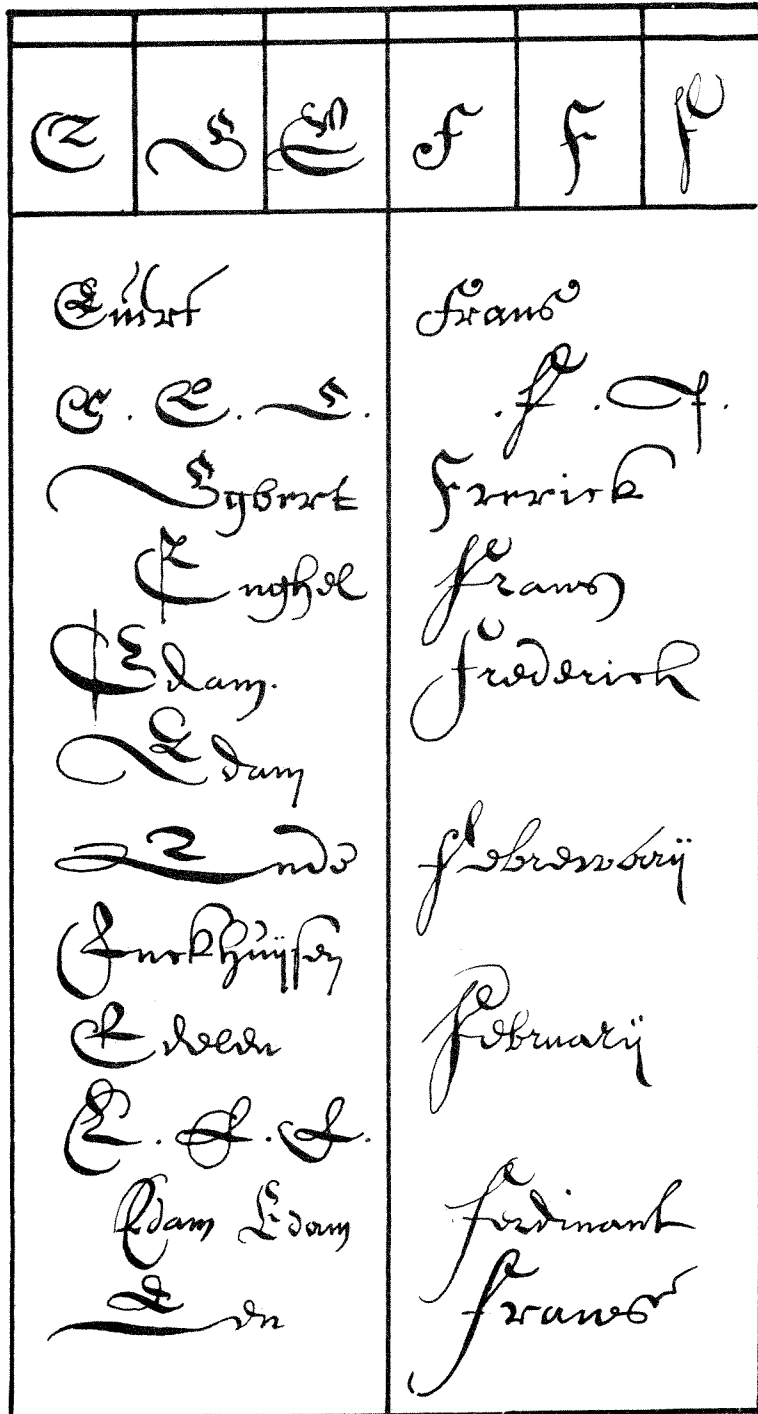 E E E F F F
Euert
E . E . E .
Egbert
Enghel
Edam.
Edam
Ende
Enckhuijsen
Edelen
E . E . E .
Edam Edam
En
Frans
. F . F .
Frerick
Frans
Frederick
Februarij
Ferdinant
Frans